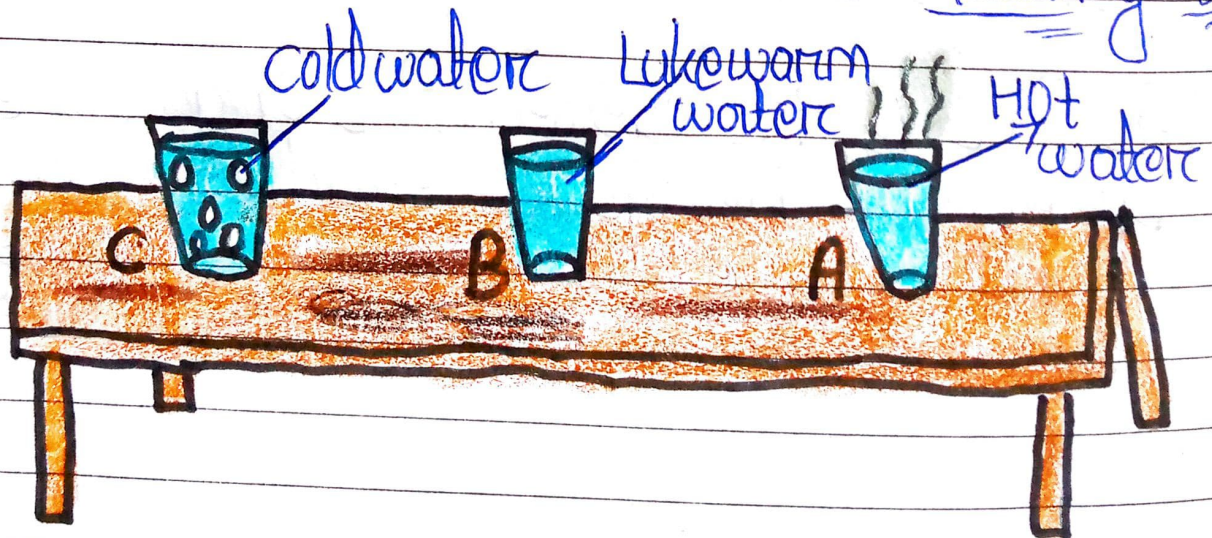 cold water
Lukewarm
water
Hot
water
C
B
A